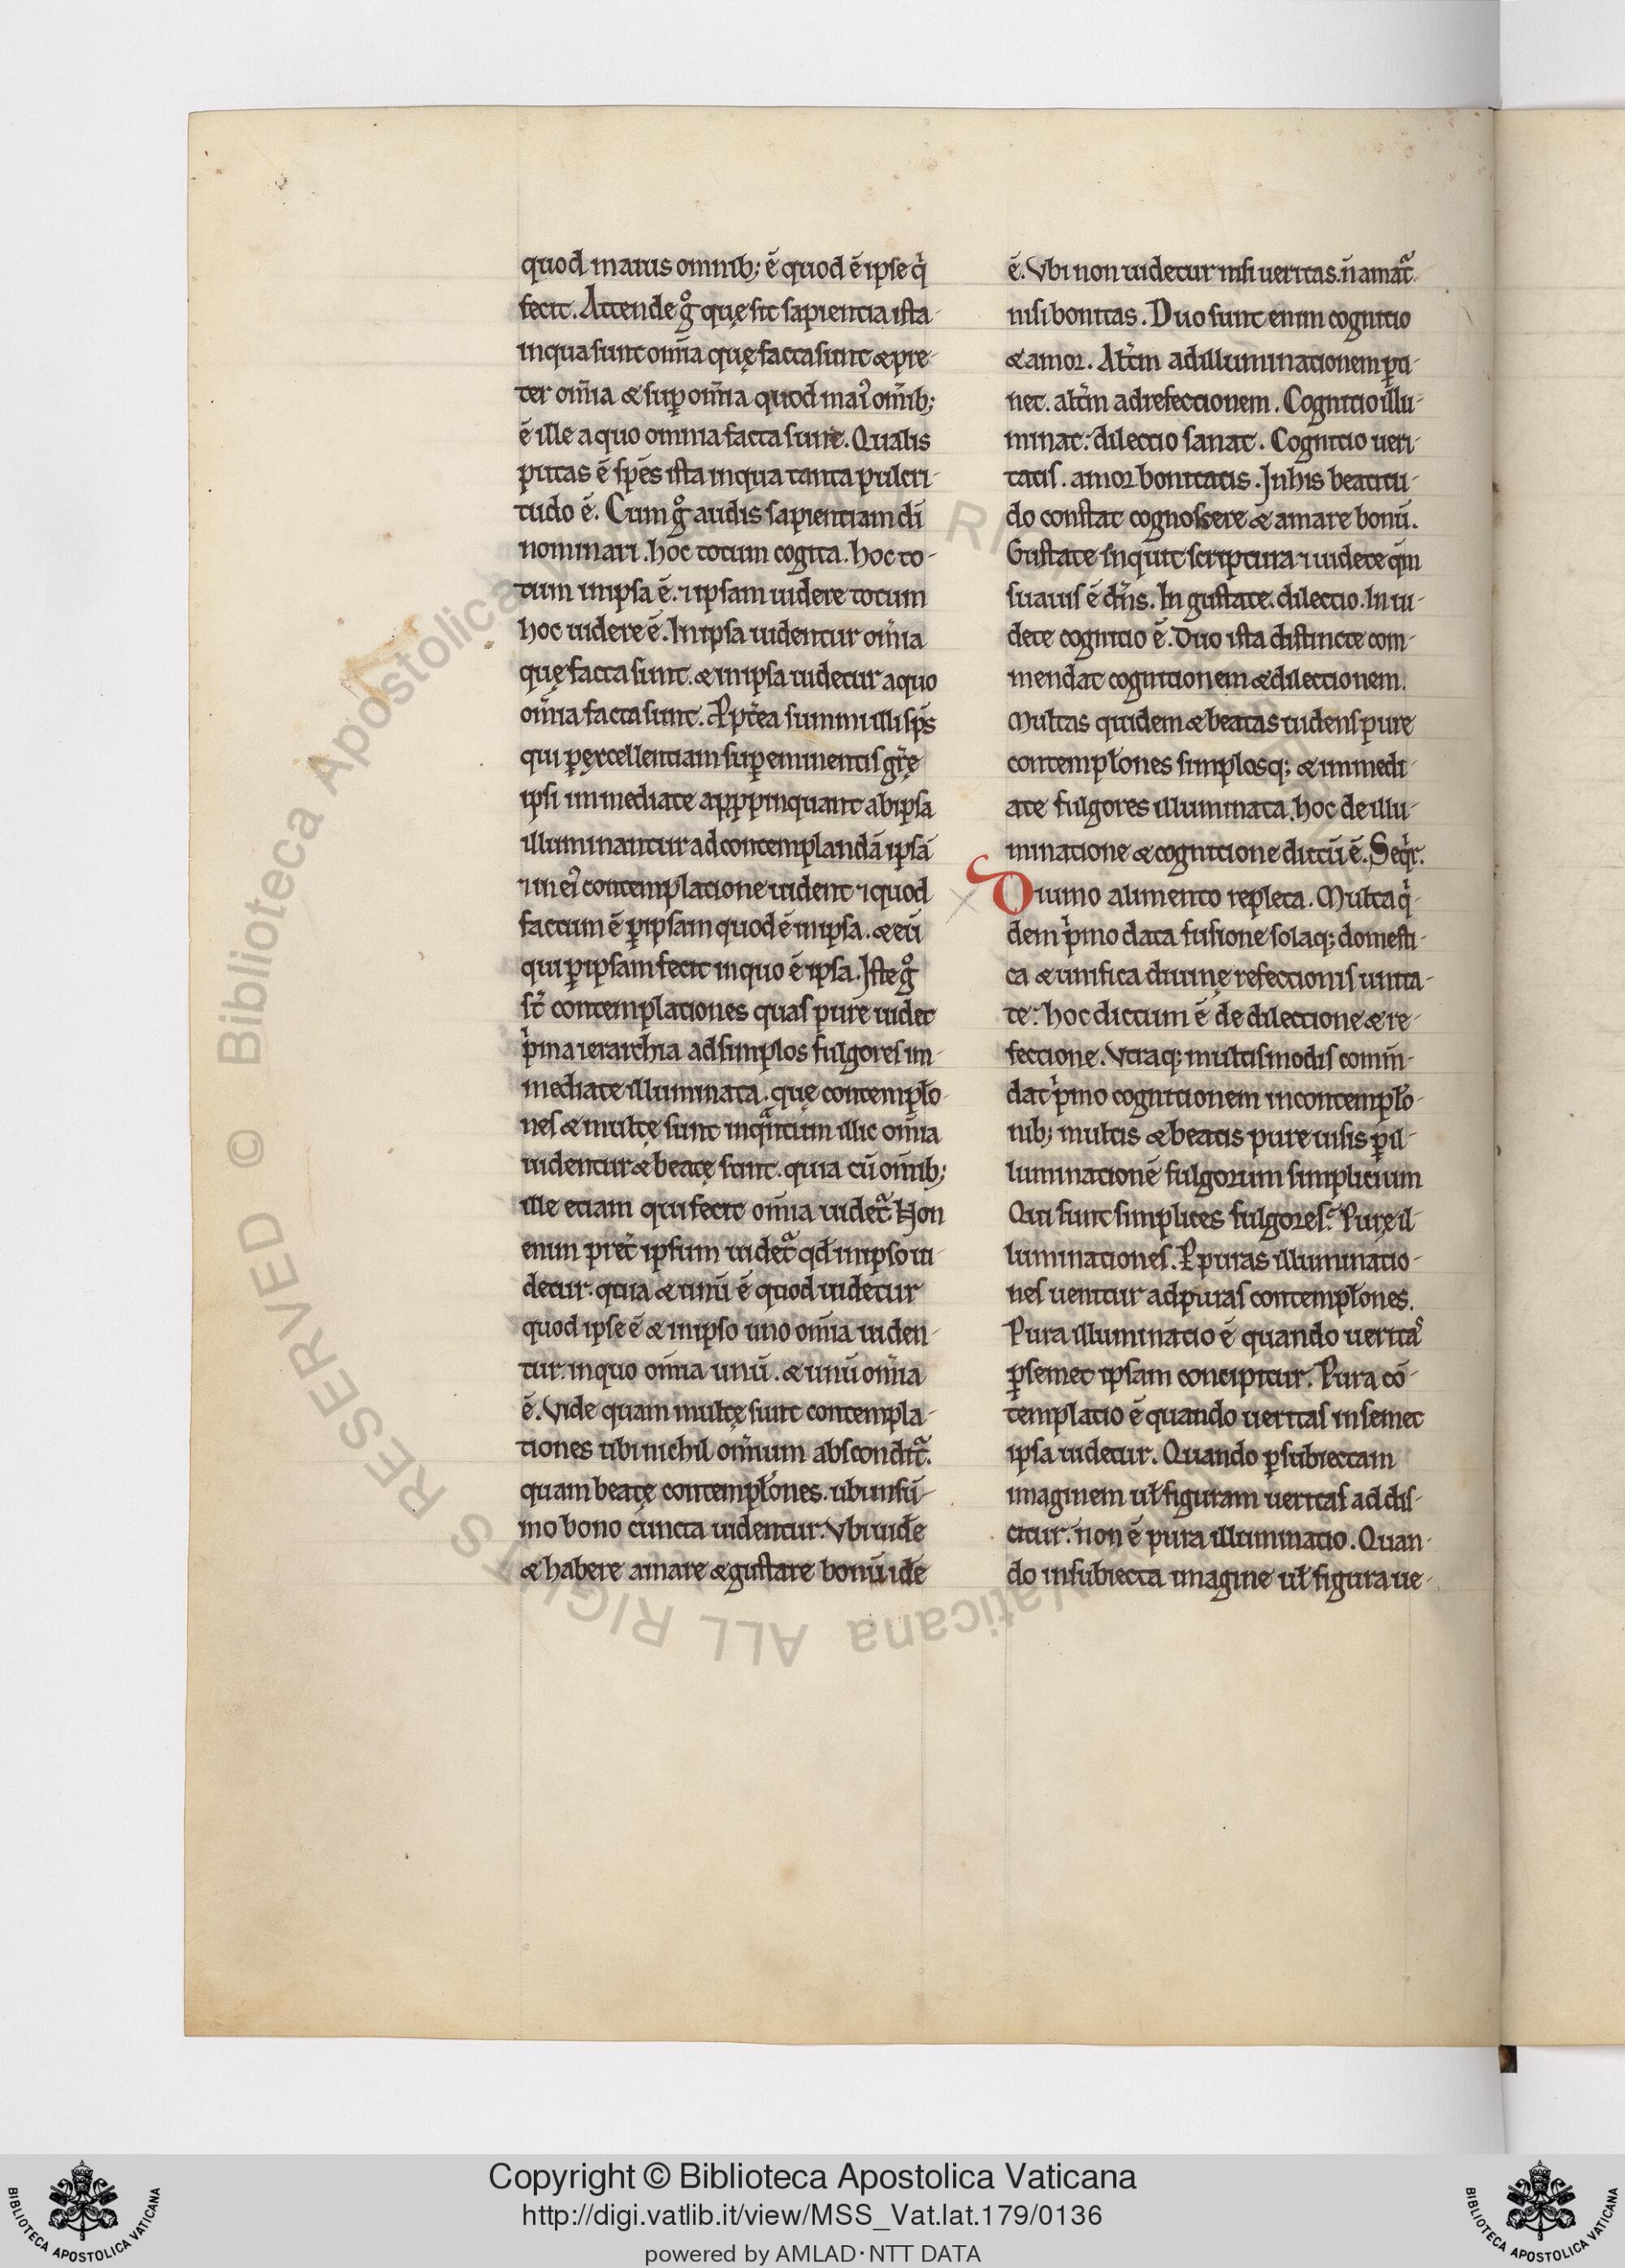 quod maius omnib; ē quod ē ipse q̇
fecit. Attende gͦ quę sit sapientia ista
inqua sunt om̄ia quę facta sunt & pre-
ter om̄ia & suꝑ om̄ia quod maiꝰ om̄ib;
ē ille a quo omnia facta sunt. Qualis
putas ē sp̄es ista inqua tanta pulcri-
tudo ē. Cum gͦ audis sapientiam dī
nominari. hoc totum cogita. hoc to-
tum in ipsa ē. ⁊ ipsam uidere totum
hoc uidere ē. In ipsa uidentur om̄ia
quę facta sunt. & in ipsa uidetur a quo
om̄ia facta sunt. Ꝓpt̄ea summi illi sp̄s
qui ꝑ excellentiam suꝑeminentis gr̄ę
ipsi immediate apꝓpinquant ab ipsa
illuminantur ad contemplandā ipsā
⁊ in eiꝰ contemplatione uident ⁊ quod
factum ē ꝑ ipsam quod ē in ipsa. & eū
qui ꝑ ipsam fecit in quo ē ipsa. Iste gͦ
st̄ contemplationes quas pure uidet
p̍ma ierarchia ad simplos fulgores im-
mediate illuminata. quę contempło-
nes & multę sunt inqᵃntum illic om̄ia
uidentur & beatę sunt. quia cū om̄ib;
ille etiam qui fecit om̄ia uidet᷑. Non
enim pret̄ ipsum uidet᷑ qd̄ in ipso ui-
detur. quia & unū ē quod uidetur
quod ipse ē & in ipso uno om̄ia uiden-
tur. in quo om̄ia unū. & unū om̄ia
ē. Vide quam multę sunt contempla-
tiones ubi nichil om̄ium abscondit᷑.
quam beatę contempłones. ubi in sū-
mo bono cuncta uidentur. Vbi uide
& habere amare & gustare bonū idē
ē. Vbi non uidetur nisi ueritas. n̄ amat᷑
nisi bonitas. Duo sunt enim cognitio
& amor. Alt̄m ad illuminationem ꝑti-
net. alt̄m ad refectionem. Cognitio illu-
minat. dilectio sanat. Cognitio ueri-
tatis. amor bonitatis. In his beatitu-
do constat cognoscere & amare bonū.
Gustate inquit scriptura ⁊ uidete qm̄
suauis ē dn̄s. In gustate. dilectio. In ui-
dete cognitio ē. Duo ista distincte com-
mendat cognitionem & dilectionem.
Multas quidem & beatas uidens pure
contempłones simplosq; & immedi-
ate fulgores illuminata. hoc de illu-
minatione & cognitione dictū ē. Seqr̄.
Diuino alimento repleta. Multa q̍-
dem p̍mo data fusione solaq; domesti-
ca & unifica diuinę refectionis unita-
te. hoc dictum ē de dilectione & re-
fectione. Vtraq; multismodis com̄n-
dat p̍mo cognitionem in contempło-
nib; multis & beatis pure uisis ꝑ il-
luminationē fulgorum simplicium
Qui sunt simplices fulgores. Purę il-
luminationes. Ꝑ puras illuminatio-
nes uenitur ad puras contempłones.
Pura illuminatio ē quando ueritaˢ
ꝑ semet ipsam concipitur. Pura cō-
templatio ē quando ueritas in semet
ipsa uidetur. Quando ꝑ subiectam
imaginem uł figuram ueritas addis-
citur. non ē pura illuminatio. Quan-
do in subiecta imagine uł figura ue-
© Biblioteca Apostolica Vaticana ALL RIGHTS RESERVED
Copyright © Biblioteca Apostolica Vaticana
http://digi.vatlib.it/view/MSS_Vat.lat.179/0136
powered by AMLAD·NTT DATA
BIBLIOTECA APOSTOLICA VATICANA
BIBLIOTECA APOSTOLICA VATICANA